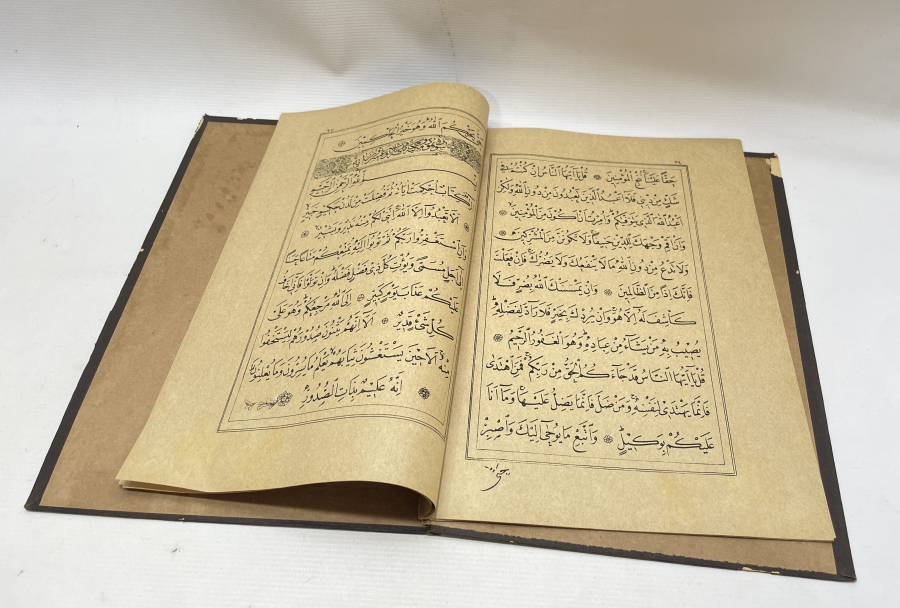 حَقًّا عَلَيْنَا نُنْجِ الْمُؤْمِنِينَ ۞ قُلْ يَٓا اَيُّهَا النَّاسُ اِنْ كُنْتُمْ فٖي
شَكٍّ مِنْ دٖينٖي فَلَٓا اَعْبُدُ الَّذٖينَ تَعْبُدُونَ مِنْ دُونِ اللّٰهِ وَلٰكِنْ
اَعْبُدُ اللّٰهَ الَّذٖي يَتَوَفّٰيكُمْ وَاُمِرْتُ اَنْ اَكُونَ مِنَ الْمُؤْمِنٖينَ
وَاَنْ اَقِمْ وَجْهَكَ لِلدّٖينِ حَنٖيفًا وَلَا تَكُونَنَّ مِنَ الْمُشْرِكٖينَ ۞
وَلَا تَدْعُ مِنْ دُونِ اللّٰهِ مَا لَا يَنْفَعُكَ وَلَا يَضُرُّكَ فَاِنْ فَعَلْتَ
فَاِنَّكَ اِذًا مِنَ الظَّالِمٖينَ ۞ وَاِنْ يَمْسَسْكَ اللّٰهُ بِضُرٍّ فَلَا
كَاشِفَ لَهُٓ اِلَّا هُوَ وَاِنْ يُرِدْكَ بِخَيْرٍ فَلَا رَٓادَّ لِفَضْلِهٖ
يُصٖيبُ بِهٖ مَنْ يَشَٓاءُ مِنْ عِبَادِهٖ وَهُوَ الْغَفُورُ الرَّحٖيمُ ۞
قُلْ يَٓا اَيُّهَا النَّاسُ قَدْ جَٓاءَكُمُ الْحَقُّ مِنْ رَبِّكُمْ فَمَنِ اهْتَدٰى
فَاِنَّمَا يَهْتَدٖي لِنَفْسِهٖ وَمَنْ ضَلَّ فَاِنَّمَا يَضِلُّ عَلَيْهَا وَمَٓا اَنَا۬
عَلَيْكُمْ بِوَكٖيلٍ ۞ وَاتَّبِعْ مَا يُوحٰٓى اِلَيْكَ وَاصْبِرْ
حتى
يَحْكُمَ اللّٰهُ وَهُوَ خَيْرُ الْحَاكِمٖينَ ۞
بسم الله الرحمن الرحيم
الٓرٰ كِتَابٌ اُحْكِمَتْ اٰيَاتُهُ ثُمَّ فُصِّلَتْ مِنْ لَدُنْ حَكٖيمٍ خَبٖيرٍ
اَلَّا تَعْبُدُٓوا اِلَّا اللّٰهَ اِنَّنٖي لَكُمْ مِنْهُ نَذٖيرٌ وَبَشٖيرٌ ۞
وَاَنِ اسْتَغْفِرُوا رَبَّكُمْ ثُمَّ تُوبُٓوا اِلَيْهِ يُمَتِّعْكُمْ مَتَاعًا حَسَنًا
اِلٰٓى اَجَلٍ مُسَمًّى وَيُؤْتِ كُلَّ ذٖي فَضْلٍ فَضْلَهُ وَاِنْ تَوَلَّوْا فَاِنّٖٓي اَخَافُ
عَلَيْكُمْ عَذَابَ يَوْمٍ كَبٖيرٍ ۞ اِلَى اللّٰهِ مَرْجِعُكُمْ وَهُوَ عَلٰى
كُلِّ شَيْءٍ قَدٖيرٌ ۞ اَلَٓا اِنَّهُمْ يَثْنُونَ صُدُورَهُمْ لِيَسْتَخْفُوا
مِنْهُ اَلَا حٖينَ يَسْتَغْشُونَ ثِيَابَهُمْ يَعْلَمُ مَا يُسِرُّونَ وَمَا يُعْلِنُونَ
۞ اِنَّهُ عَلٖيمٌ بِذَاتِ الصُّدُورِ ۞